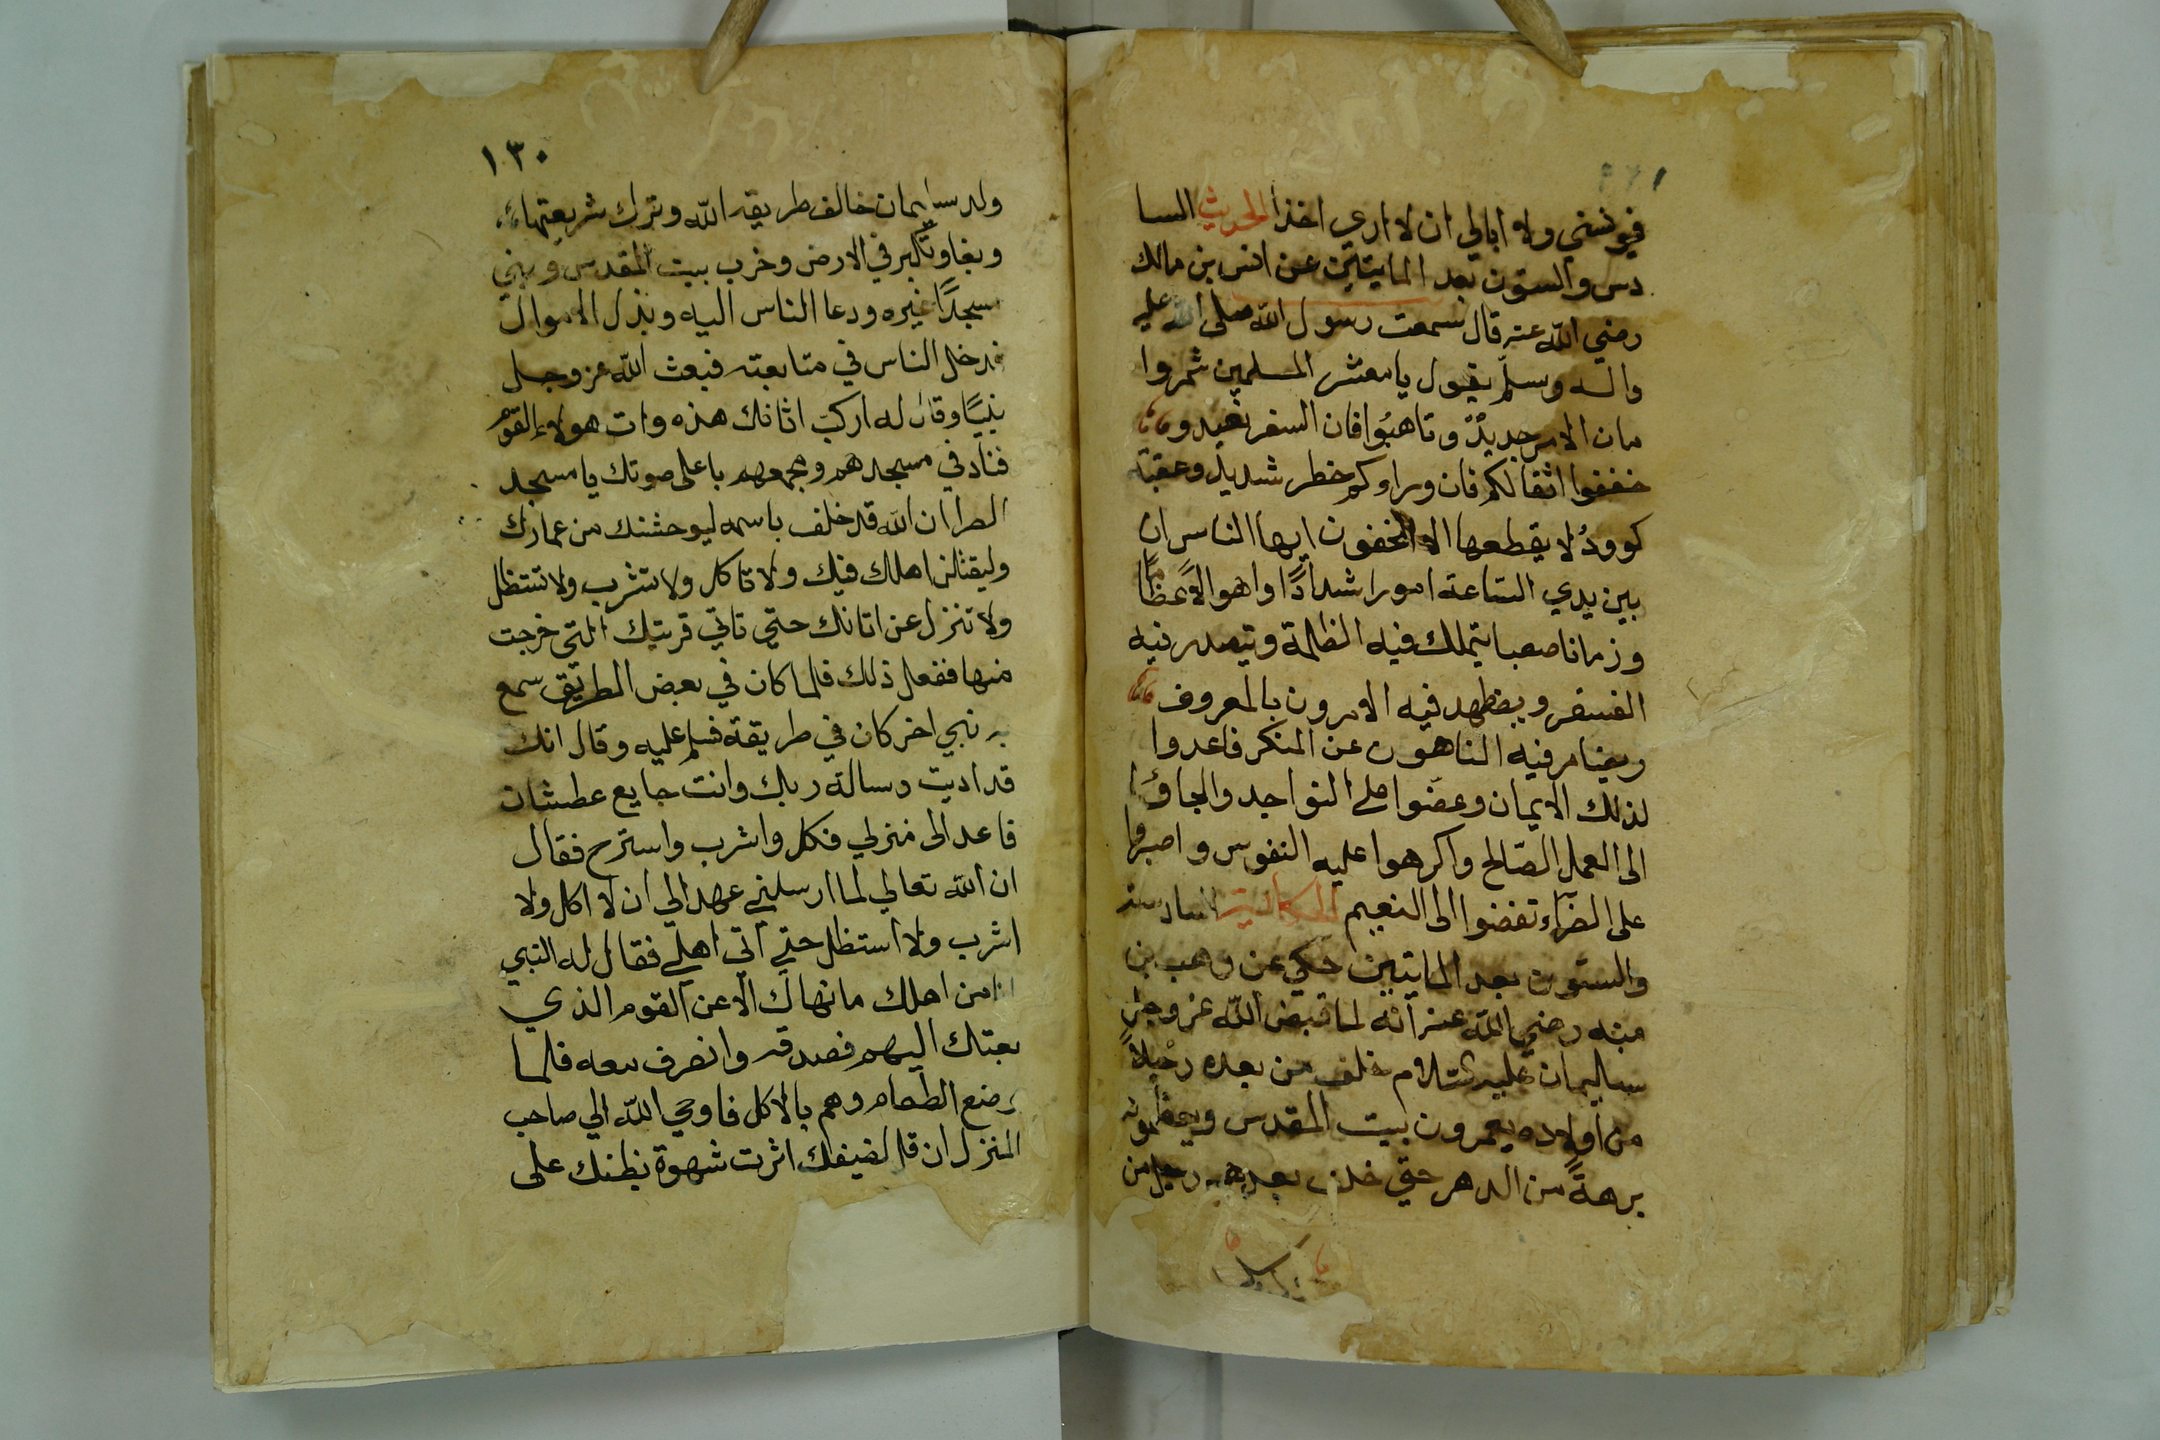 فيونسني ولا ابالي ان لا اري اخذا الحديث السا
دس والستون بعد المايتين عن انس بن مالك
رضي الله عنه قال سمعت رسول الله صلى الله عليه
واله وسلم يقول يا معشر المسلمين شمروا
مان الامر جديدٌ وتاهبُوا فان السفر بعيد و
خففوا اثقالكم فان وراوكم خطر شديد وعقبة
كوودُ لا يقطعها الا المخفون ايها الناس ان
بين يدي الساعة امورا شدادًا واهوالًا عظامًا
وزمانا صعبا يتملك فيه الظلمة ويتصدر فيه
الفسقر ويضطهد فيه الامرون بالمعروف
ويضام فيه الناهون عن المنكر فاعدوا
لذلك الايمان وعضوا عليه النواجد والجاؤا
الى العمل الصالح واكرهوا عليه النفوس واصبروا
على الضراء تفضوا الى النعيم الحكاية السادسة
والستون بعد المايتين حكي عن وهب بن
منبه رضي الله عنه انه لما قبض الله عز وجل
سليمان عليه السلام خلف من بعده رجلاً
من اولاده يعمرون بيت المقدس ويعظمونه
برهةً من الدهر حتي خلف بعدهم رجل من
١٣٠
ولد سليمان خالف طريقة الله وترك شريعتها
وبغا وتكبر في الارض وخرب بيت المقدس وبني
مسجدًا غيره ودعا الناس اليه وبذل الاموال
فدخل الناس في متابعته فبعث الله عز وجل
نبيًا وقال له اركب اتانك هذه وات هولاء القوم
فناد في مسجدهم ومجمعهم باعلى صوتك يا مسجد
الضرا ان الله قد خلف باسمه ليوحشنك من عمارك
وليقتلن اهلك فيك ولا تاكل ولا تشرب ولا تستظل
ولا تنزل عن اتانك حتى تاتي قريتك التي خرجت
منها ففعل ذلك فلما كان في بعض الطريق سمع
به نبي اخر كان في طريقة فسلم عليه وقال انك
قد اديت رسالة ربك وانت جايع عطشان
فاعد الى منزلي فكل واشرب واسترح فقال
ان الله تعالي لما ارسلني عهد الي ان لا اكل ولا
اشرب ولا استظل حتي آتي اهلي فقال له النبي
انا من اهلك ما نهاك الا عن القوم الذي
بعتك اليهم فصدقه وانصرف معه فلما
وضع الطعام وهم بالاكل فاوحي الله الي صاحب
المنزل ان قل لضيفك اثرت شهوة بطنك على